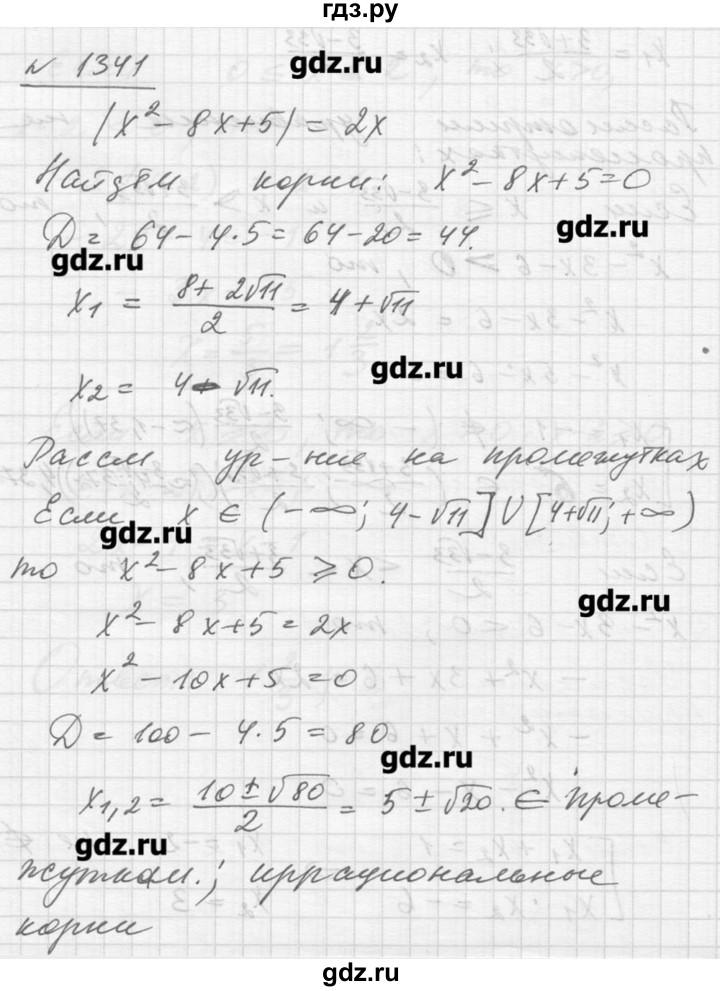 гдз.ру
№ 1341
gdz.ru
|x² - 8x + 5| = 2x
Найдём корни: x² - 8x + 5 = 0
gdz.ru
D = 64 - 4·5 = 64 - 20 = 44.
gdz.ru
x₁ = (8 + 2√11)/2 = 4 + √11
gdz.ru
x₂ = 4 - √11.
Рассм ур-ние на промежутках
Если x ∈ (-∞; 4-√11] ∪ [4+√11; +∞)
gdz.ru
то x² - 8x + 5 ⩾ 0.
gdz.ru
x² - 8x + 5 = 2x
x² - 10x + 5 = 0
D = 100 - 4·5 = 80
gdz.ru
x₁,₂ = (10 ± √80)/2 = 5 ± √20. ∈ проме-
gdz.ru
жуткам.; иррациональные
корни
gdz.ru